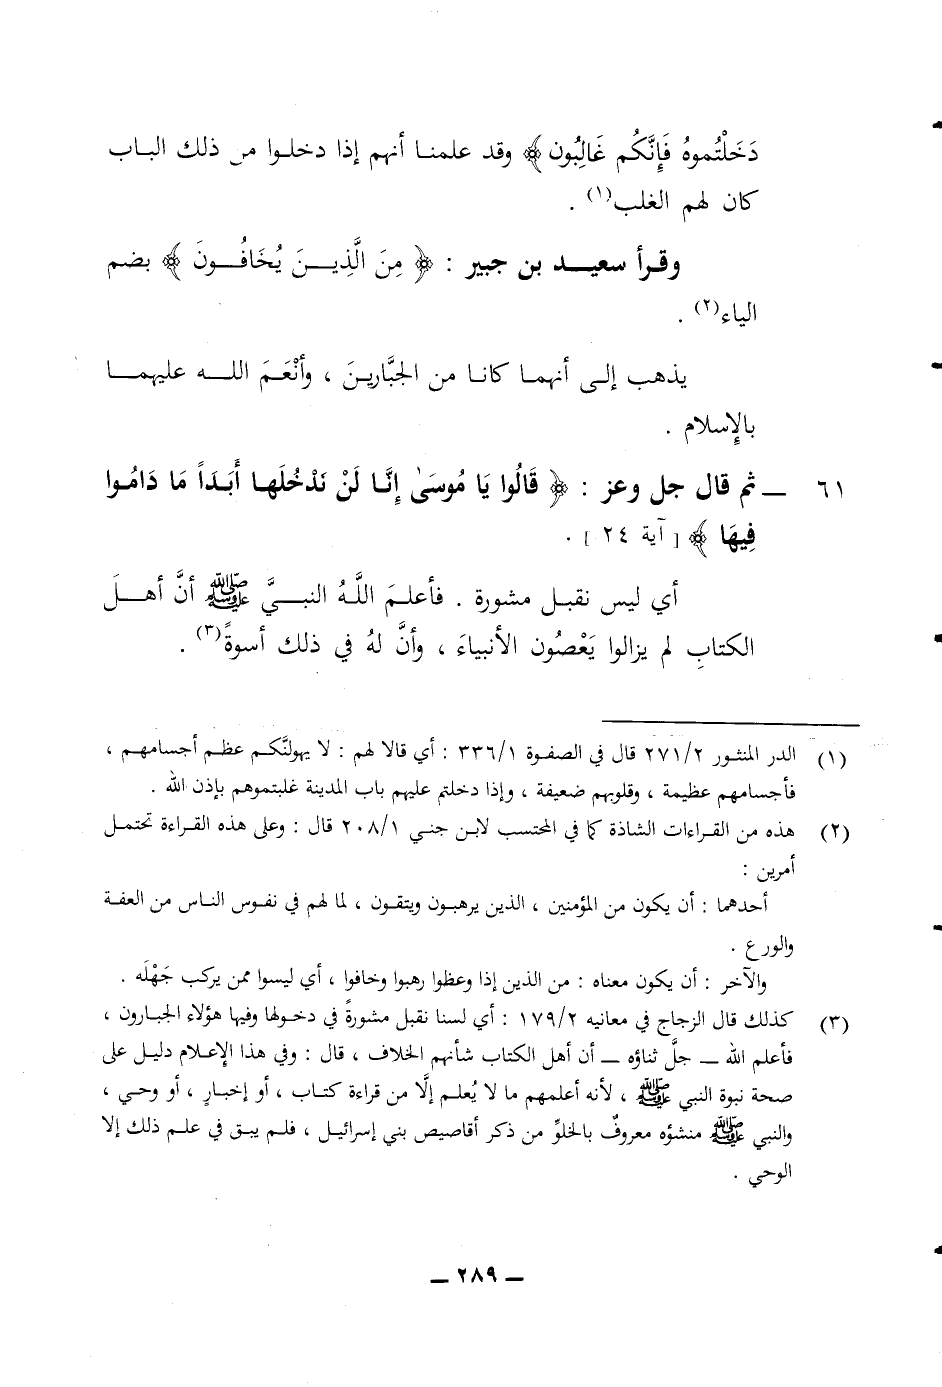 دَخَلْتُموهُ فَإِنَّكُم غَالِبُون ﴾ وقد علمنـا أنهم إذا دخلـوا من ذلك البـاب
كان لهم الغلب(١) .
وقـرأ سعيـد بن جبير : ﴿ مِنَ الَّذِيـنَ يُخَافُـونَ ﴾ بضم
الياء(٢) .
يذهب إلى أنهمـا كانـا من الجَبَّارِينَ ، وأنْعَمَ اللـه عليهمـا
بالإِسلام .
٦١ ــ ثم قال جل وعز : ﴿ قَالُوا يَا مُوسَىٰ إِنَّـا لَنْ نَدْخُلَهـا أَبَـدَاً مَا دَامُـوا
فِيهَا ﴾ [ آية ٢٤ ] .
أي ليس نقبـل مشورة . فأعلـمَ اللَّـهُ النبـيَّ ﷺ أنَّ أهـلَ
الكتابِ لم يزالوا يَعْصُون الأنبياءَ ، وأنَّ لهُ في ذلك أسوةً(٣) .
(١) الدر المنثـور ٢٧١/٢ قال في الصفـوة ٣٣٦/١ : أي قالا لهم : لا يهولنَّكـم عظـم أجسامهـم ،
فأجسامهم عظيمة ، وقلوبهم ضعيفة ، وإذا دخلتم عليهم باب المدينة غلبتموهم بإذن الله .
(٢) هذه من القـراءات الشاذة كما في المحتسب لابـن جني ٢٠٨/١ قال : وعلى هذه القـراءة تحتمـل
أمرين :
أحدهما : أن يكون من المؤمنين ، الذين يرهبـون ويتقـون ، لما لهم في نفـوس النـاس من العفـة
والورع .
والآخر : أن يكون معناه : من الذين إذا وعظوا رهبوا وخافوا ، أي ليسوا ممن يركب جَهْلَه .
(٣) كذلك قال الزجاج في معانيه ١٧٩/٢ : أي لسنا نقبل مشورةً في دخولها وفيها هؤلاء الجبارون ،
فأعلم الله ــ جلَّ ثناؤه ــ أن أهل الكتاب شأنهم الخلاف ، قال : وفي هذا الإعـلام دليـل على
صحة نبوة النبي ﷺ ، لأنه أعلمهم ما لا يُعلـم إلَّا من قراءة كتـاب ، أو إخبـارٍ ، أو وحـي ،
والنبي ﷺ منشؤه معروفٌ بالخلوِّ من ذكر أقاصيص بني إسرائيـل ، فلـم يبـق في علـم ذلك إلا
الوحي .
ــ ٢٨٩ ــ